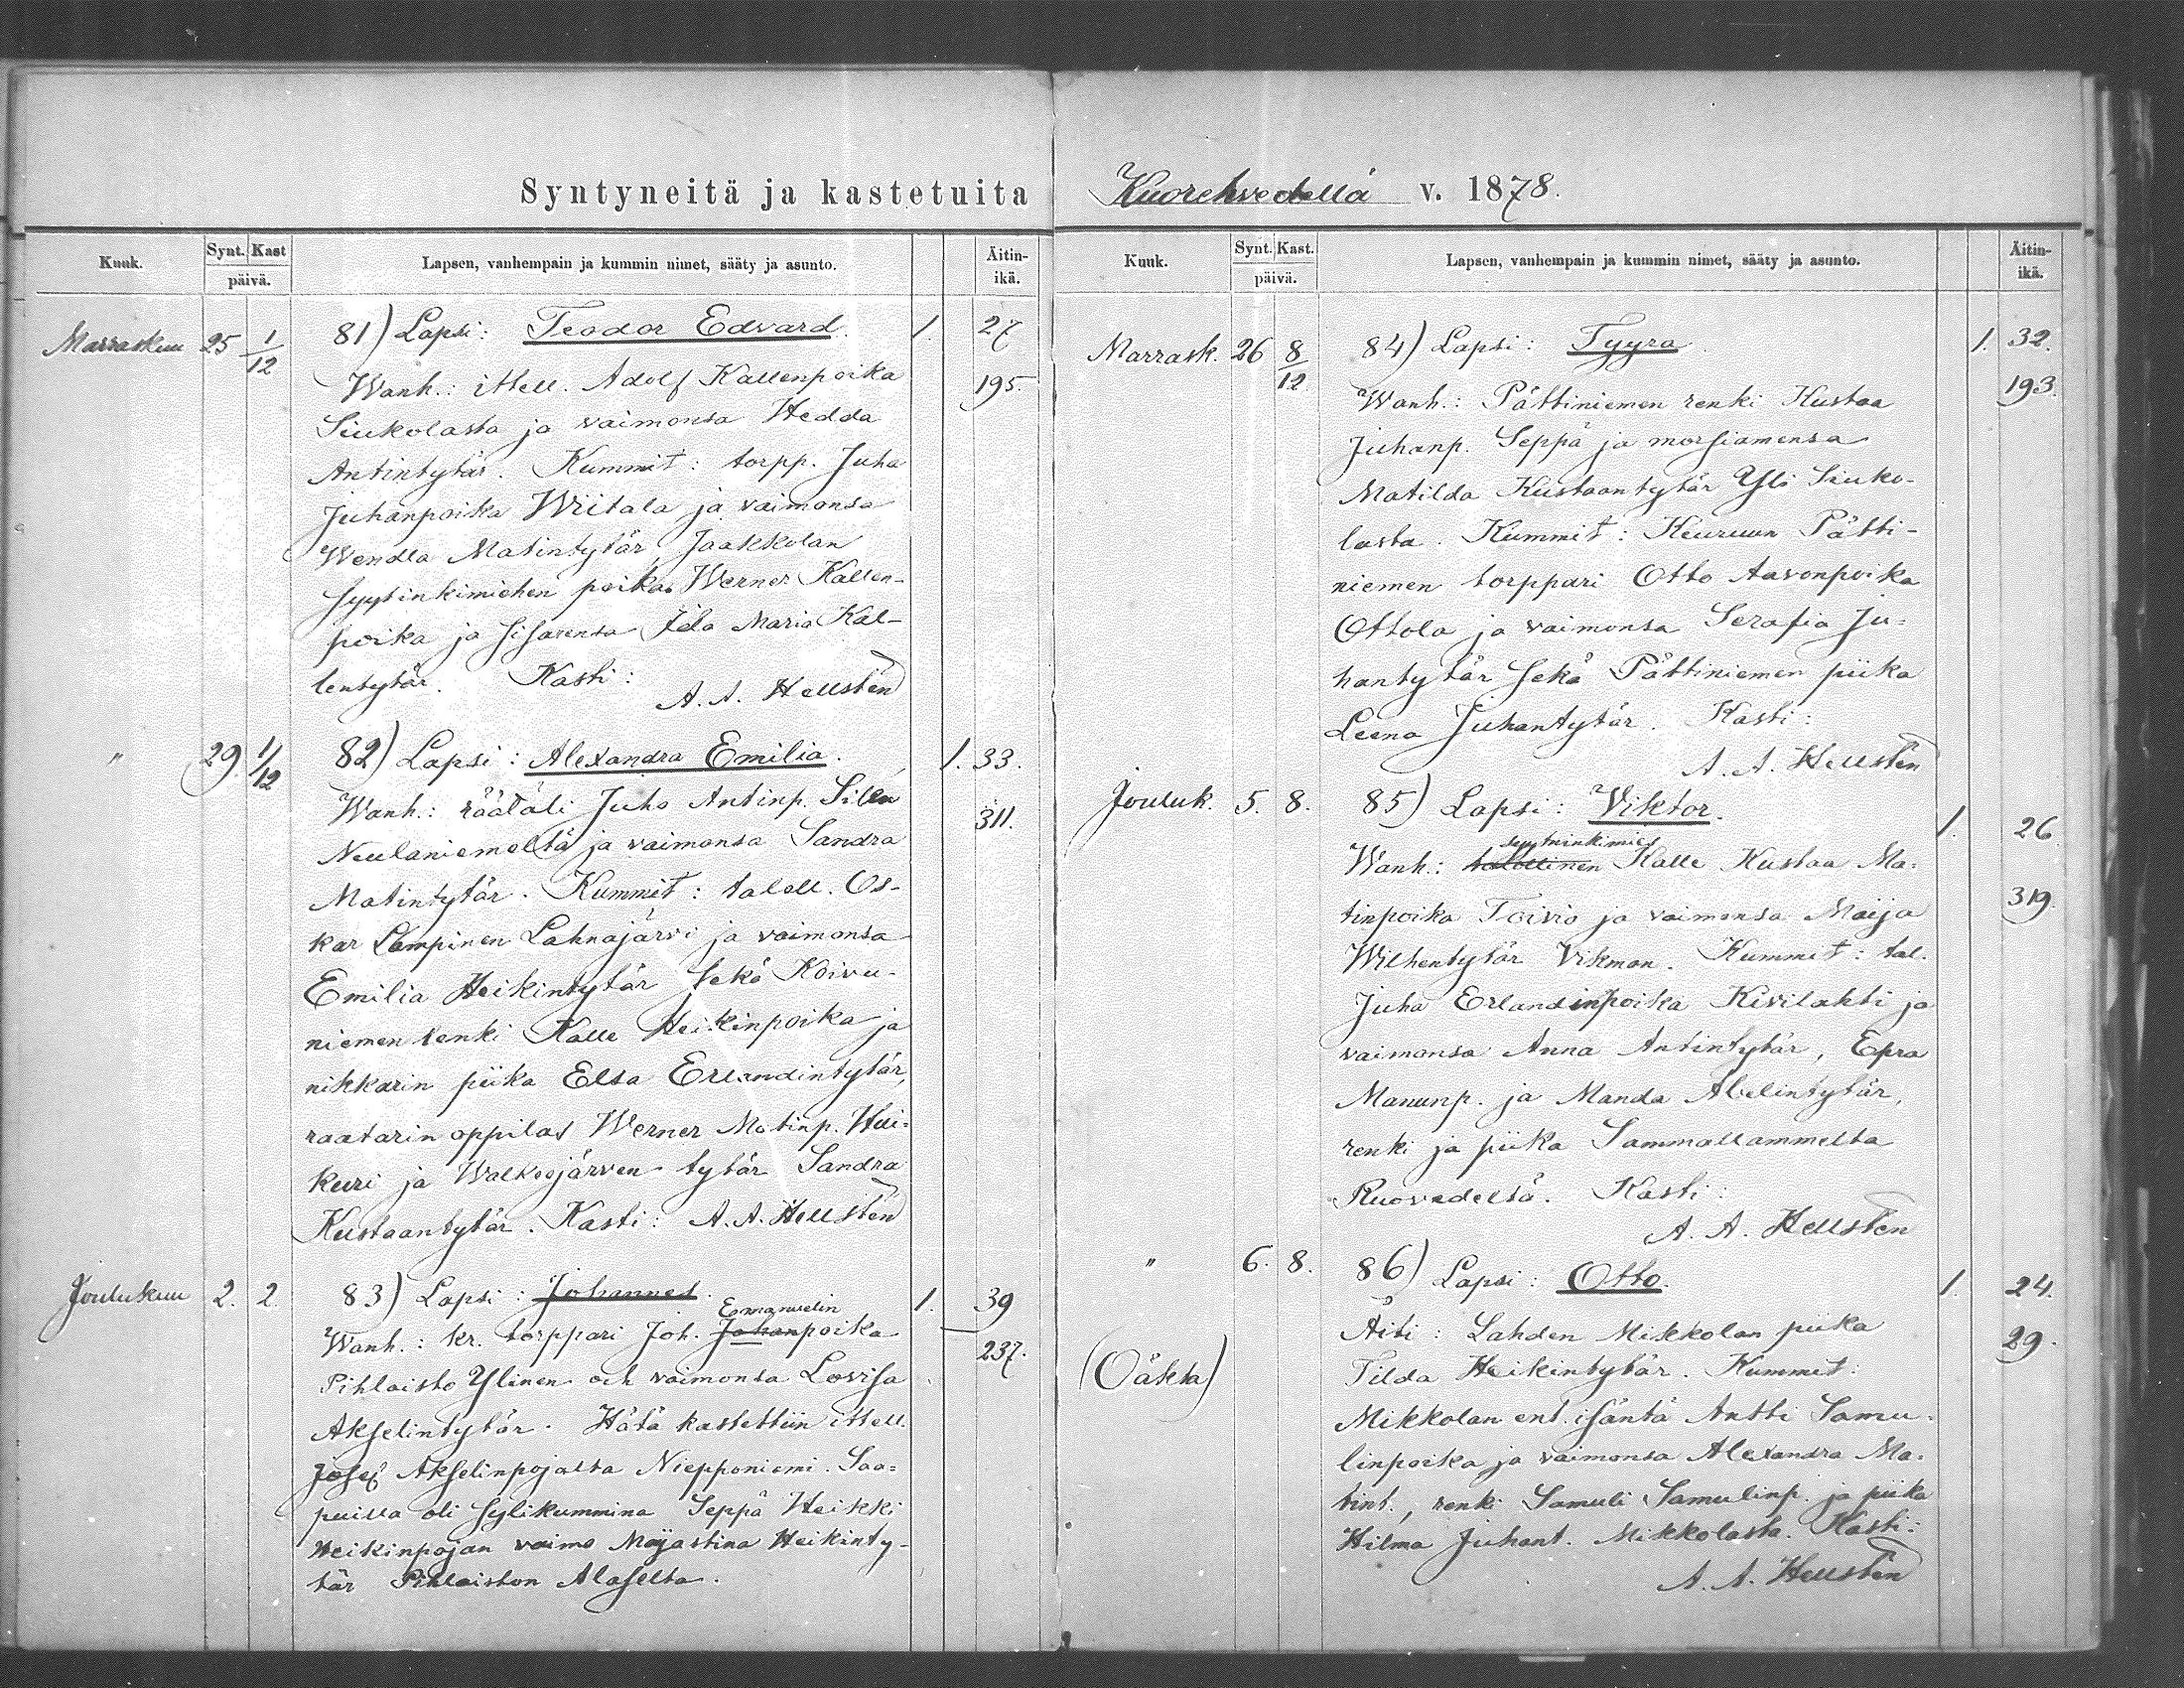 Syntyneitä ja kastetuita
Kuuk. Synt. Kast päivä. Lapsen, vanhempain ja kummin nimet, sääty ja asunto. Äitin-ikä.
Marraskuu 25 1/12 81) Lapsi: Teodor Edvard. 1. 27
Wanh.: ittell. Adolf Kallenpoika 195.
Siukolasta ja vaimonsa Hedda
Antintytär. Kummit: torpp. Juha
Juhanpoika Wiitala ja vaimonsa
Wendla Matintytär, Jaakkolan
syytinkimiehen poika Werner Kallen-
poika ja sisarensa Ida Maria Kal-
lentytär. Kasti:
A. A. Hellstén
" 29. 1/12 82) Lapsi: Alexandra Emilia. 1. 33.
Wanh.: räätäli Juho Antinp. Silén 311.
Neulaniemeltä ja vaimonsa Sandra
Matintytär. Kummit: talell. Os-
kar Lampinen Lahnajärvi ja vaimonsa
Emilia Heikintytär sekä Koivu-
niemen renki Kalle Heikinpoika ja
nikkarin piika Elsa Erlandintytär,
raatarin oppilas Werner Matinp. Hui-
kuri ja Walkeejärven tytär Sandra
Kustaantytär. Kasti: A. A. Hellstén
Joulukuu 2. 2. 83) Lapsi: Johannes. 1. 39
Emanuelin
Wanh.: kr. torppari Joh. Johanpoika 237.
Pihlaisto Ylinen och vaimonsa Lovisa
Akselintytär. Hätä kastettiin ittell.
Josef Akselinpojalta Niepponiemi. Saa-
puilla oli sylikummina Seppä Heikki
Heikinpojan vaimo Majastina Heikinty-
tär Pihlaiston Alaselta.
Kuorehvedellä v. 1878.
Kuuk. Synt. Kast. päivä. Lapsen, vanhempain ja kummin nimet, sääty ja asunto. Äitin-ikä.
Marrask. 26 8/12. 84) Lapsi: Tyyra. 1. 32.
Wanh.: Pättiniemen renki Kustaa 193.
Juhanp. Seppä ja morsiamensa
Matilda Kustaantytär Yli Siuko-
lasta. Kummit: Keuruun Pätti-
niemen torppari Otto Aavonpoika
Ottola ja vaimonsa Serafia Ju-
hantytär sekä Pättiniemen piika
Leena Juhantytär. Kasti:
A. A. Hellstén
Jouluk. 5. 8. 85) Lapsi: Viktor. 1. 26
syytinkimies
Wanh.: talollinen Kalle Kustaa Ma-
tinpoika Toivio ja vaimonsa Maija 319.
Wilhentytär Vikman. Kummit: tal.
Juha Erlandinpoika Kivilahti ja
vaimonsa Anna Antintytär, Epra
Manunp. ja Manda Abelintytär,
renki ja piika Sammallammelta
Ruovedeltä. Kasti:
A. A. Hellstén
" 6. 8. 86) Lapsi: Otto. 1. 24.
(Oäkta) Äiti: Lahden Mikkolan piika 29.
Tilda Heikintytär. Kummit:
Mikkolan ent. isäntä Antti Samu-
linpoika ja vaimonsa Alexandra Ma-
tint., renki Samuli Samulinp. ja piika
Hilma Juhant. Mikkolasta. Kasti:
A. A. Hellstén